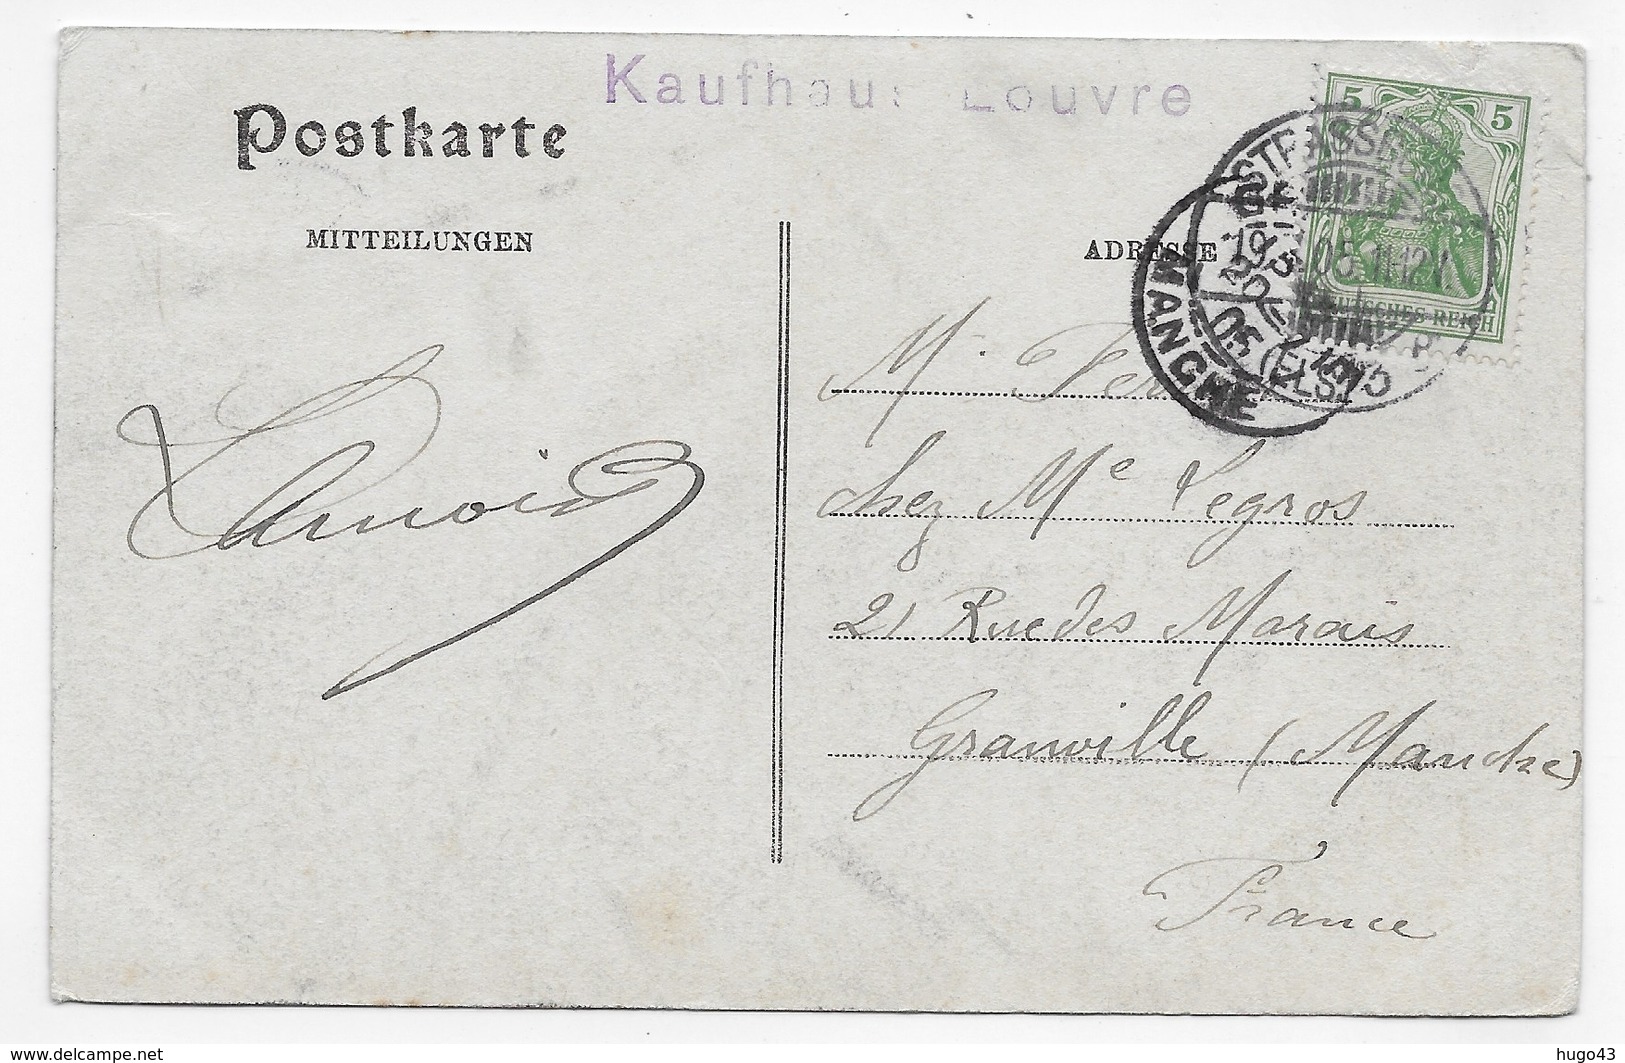 Kaufhaus Louvre
Postkarte
MITTEILUNGEN
ADRESSE
5 5
DEUTSCHES REICH
STRASSB
19.5.05.11-12V
(ELS)
MANCHE
05
M
chez Me Legros
21 Rue des Marais
Granville (Manche)
France
www.delcampe.net
hugo43